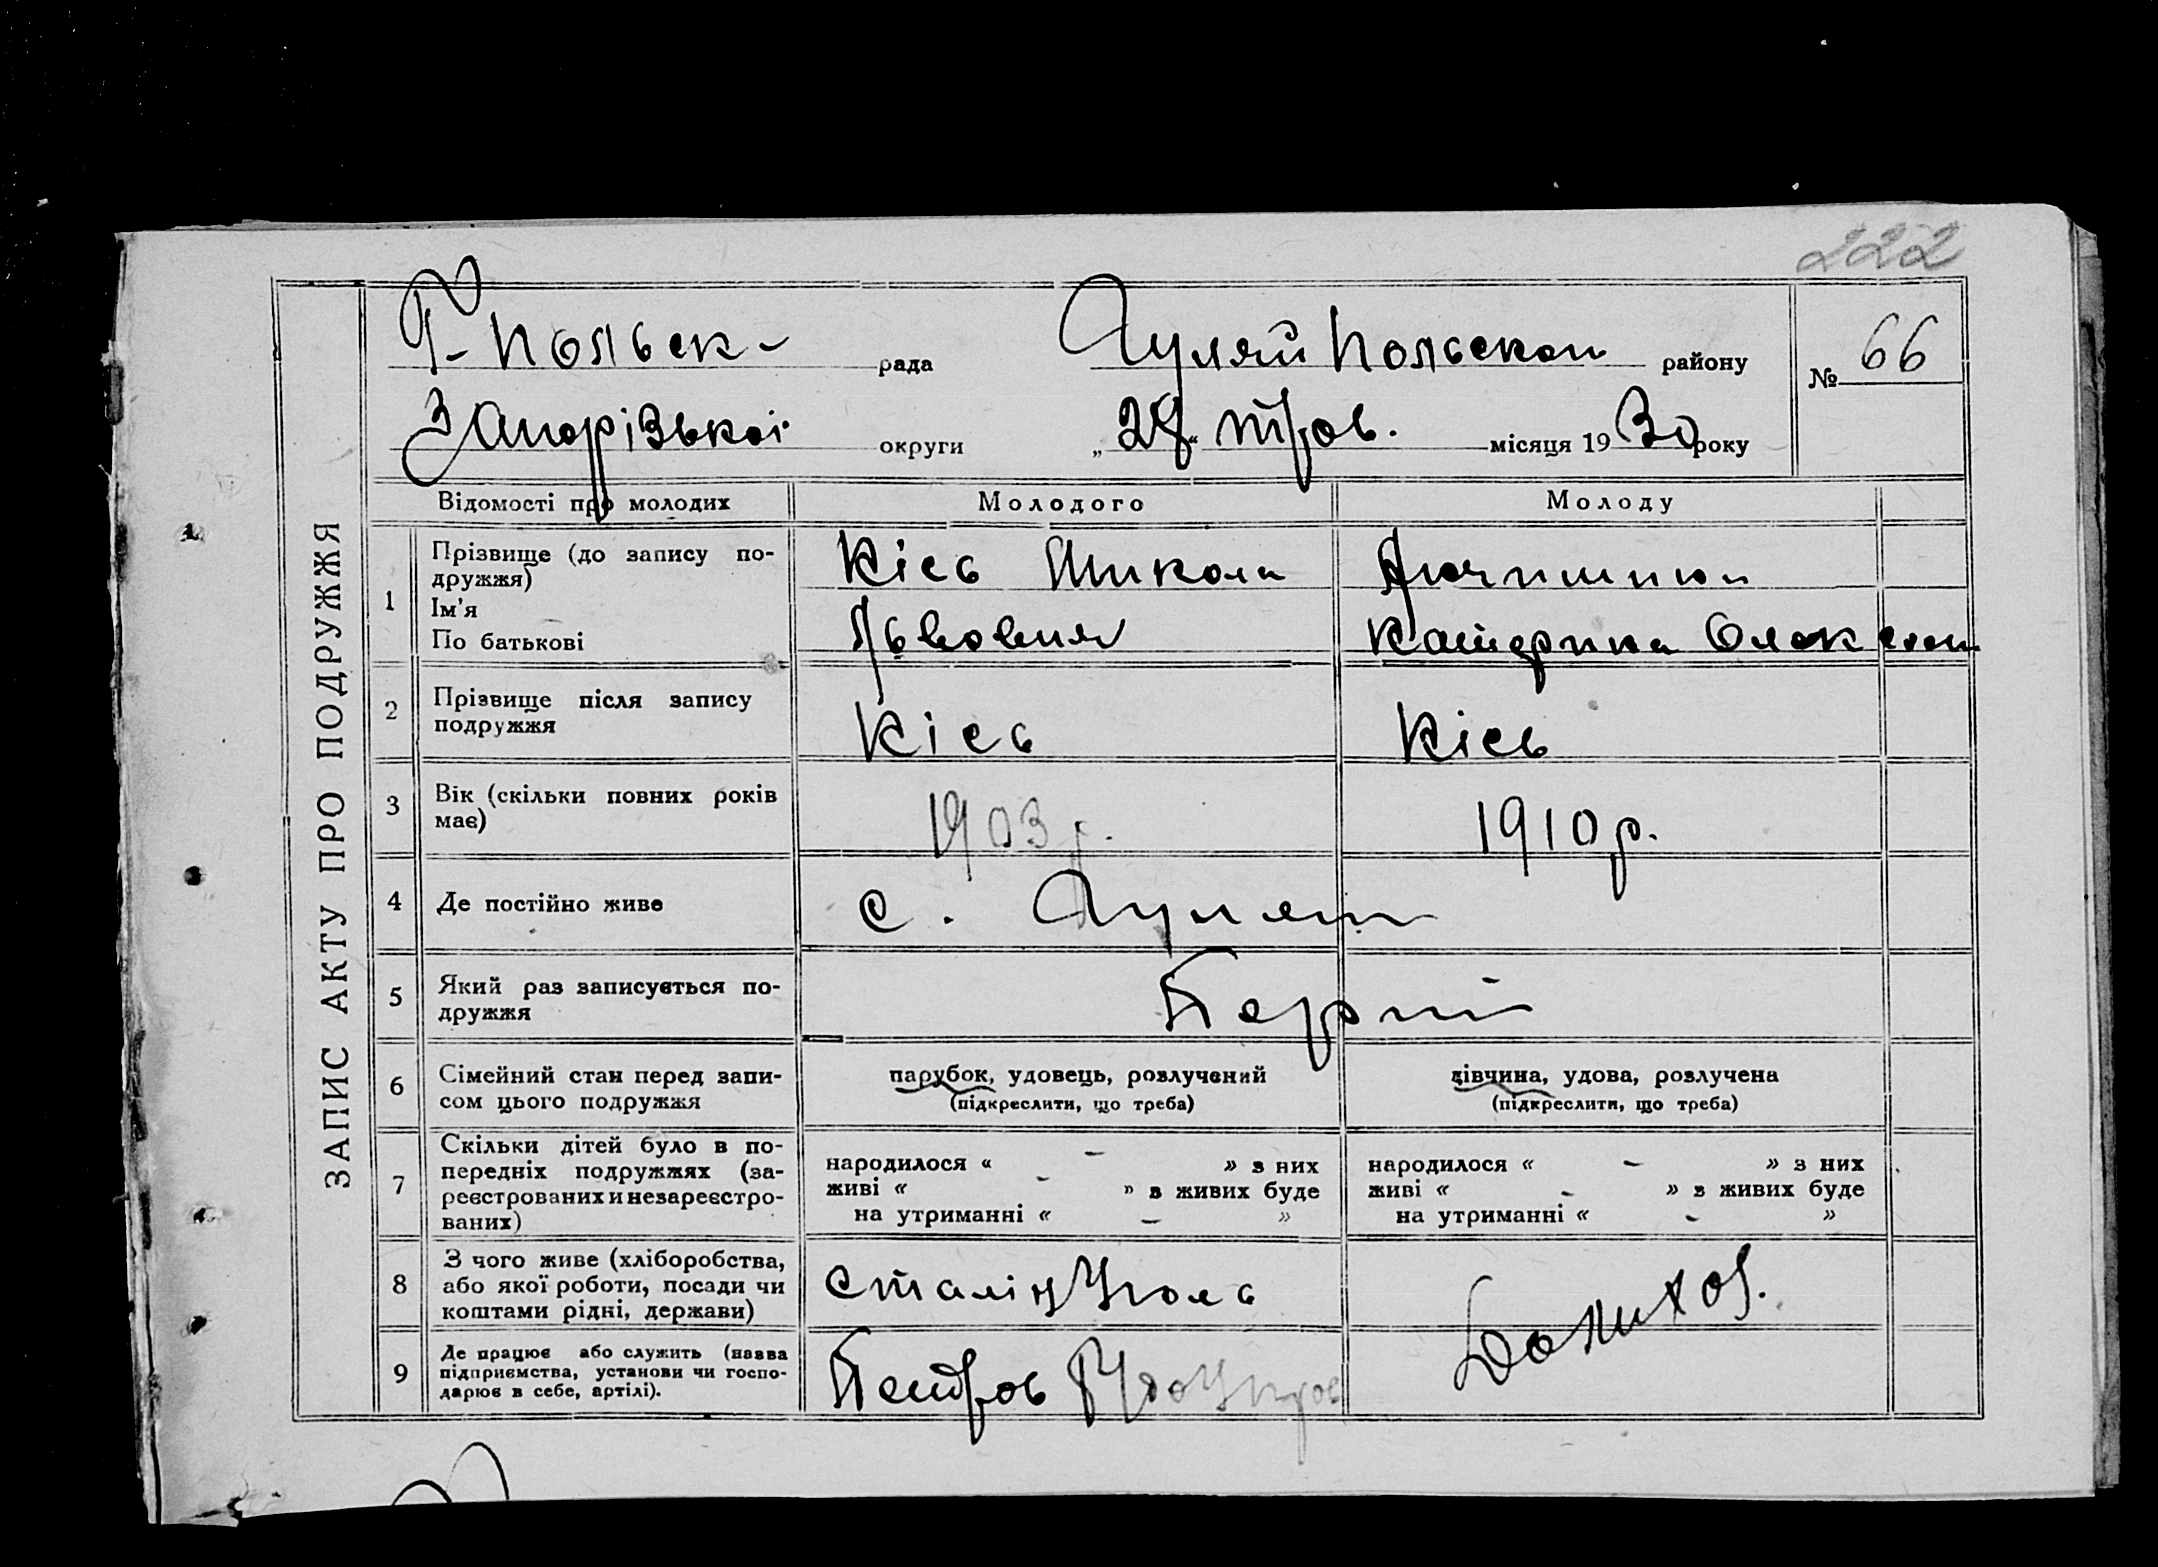 222
Г-Польськ- рада Гуляйпольської району № 66
Запорізької округи „28“ трав. місяця 1930 року
ЗАПИС АКТУ ПРО ПОДРУЖЖЯ
Відомості про молодих Молодого Молоду
1 Прізвище (до запису по-
дружжя)
Ім'я
По батькові
Кісь Микола
Львовия
Катерина Олексеев
2 Прізвище після запису
подружжя
Кісь Кісь
3 Вік (скільки повних років
має)
1903 р. 1910 р.
4 Де постійно живе
с. Гуляй
5 Який раз записується по-
дружжя
Перший
6 Сімейний стан перед запи-
сом цього подружжя
парубок, удовець, розлучений
(підкреслити, що треба)
дівчина, удова, розлучена
(підкреслити, що треба)
7 Скільки дітей було в по-
передніх подружжях (за-
реєстрованих и незареєстро-
ваних)
народилося « – » з них
живі « – » з живих буде
на утриманні « – »
народилося « – » з них
живі « – » з живих буде
на утриманні « – »
8 З чого живе (хліборобства,
або якої роботи, посади чи
коштами рідні, держави)
9 Де працює або служить (назва
підприємства, установи чи госпо-
дарює в себе, артілі).
Петров